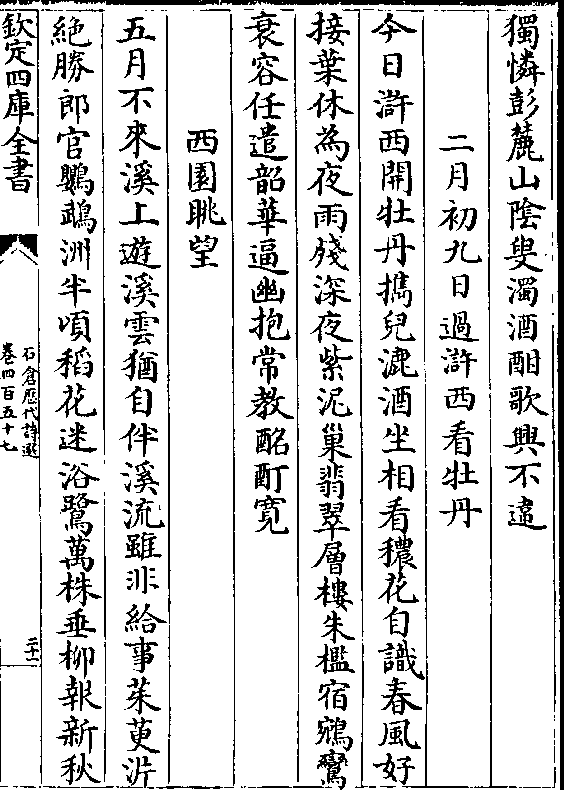 獨憐彭麓山陰叟濁酒酣歌興不違
二月初九日過滸西看牡丹
今日滸西開牡丹攜兒漉酒坐相看穠花自識春風好
接葉休為夜雨殘深夜紫泥巢翡翠層樓朱檻宿鵷鸞
衰容任遣韶華逼幽抱常教酩酊寛
西園眺望
五月不來溪上遊溪雲猶自伴溪流雖非給事茱萸沜
絶勝郎官鸚鵡洲半頃稻花迷浴鷺萬株垂柳報新秋
欽定四庫全書
石倉歷代詩選
卷四百五十七
二十二